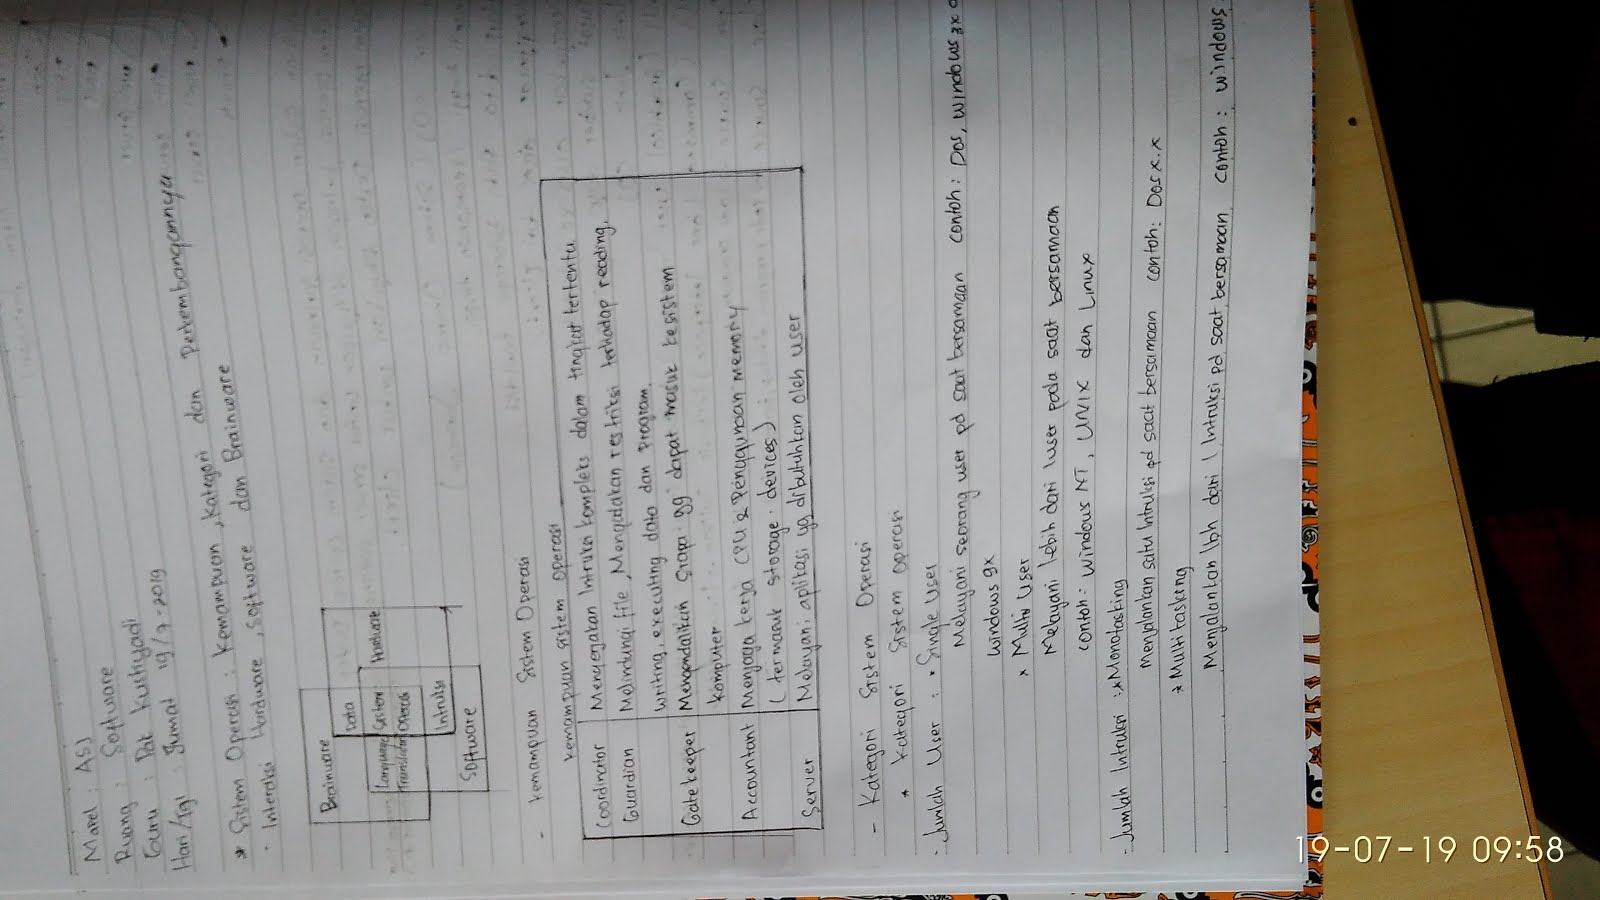 Mapel : ASJ
Ruang : Software
Guru : Pak Kustiyadi
Hari/Tgl : Jumat 19/7-2019
* Sistem Operasi : Kemampuan, Kategori dan Perkembangannya
- Interaksi Hardware, Software dan Brainware
Brainware
Data
Hardware
Language Translator
Sistem Operasi
Intruksi
Software
- Kemampuan Sistem Operasi
Kemampuan sistem operasi
Coordinator Mengerjakan Intruksi kompleks dalam tingkat tertentu
Guardian Melindungi file, Mengadakan restriksi terhadap reading,
writing, executing data dan program.
Gatekeeper Mengendalikan siapa yg dapat masuk kesistem
komputer
Accountant Menjaga kerja CPU & Penggunaan memory
( termasuk storage devices )
Server Melayani aplikasi yg dibutuhkan oleh user
- Kategori Sistem Operasi
* Kategori Sistem Operasi
- Jumlah User : * Single User
Melayani seorang user pd saat bersamaan contoh : Dos, Windows 3x
Windows 9x
* Multi User
Melayani lebih dari 1user pada saat bersamaan
contoh : Windows NT, UNIX dan Linux
- Jumlah Intruksi : * Monotasking
Menjalankan satu Intruksi pd saat bersamaan contoh : Dos x.x
* Multitasking
Menjalankan lbh dari 1 Intruksi pd saat bersamaan contoh : windows
19-07-19 09:58